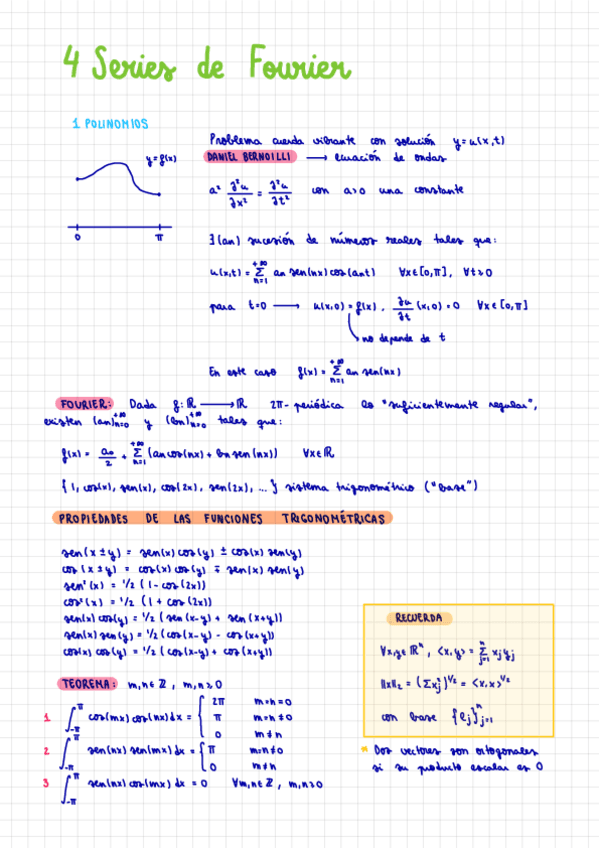 4 Series de Fourier
1 POLINOMIOS
Problema cuerda vibrante con solución y=u(x,t)
y=f(x)
DANIEL BERNOILLI → ecuación de ondas
a² ∂²u/∂x² = ∂²u/∂t² con a>0 una constante
0 π
∃(an) sucesión de números reales tales que:
u(x,t) = Σ_{n=1}^{+∞} an sen(nx) cos(ant) ∀x∈[0,π], ∀t>0
para t=0 → u(x,0) = f(x), ∂u/∂t (x,0) = 0 ∀x∈[0,π]
no depende de t
En este caso f(x) = Σ_{n=1}^{+∞} an sen(nx)
FOURIER: Dada f: ℝ → ℝ 2π-periódica lo "suficientemente regular",
existen (an)_{n=0}^{+∞} y (bn)_{n=0}^{+∞} tales que:
f(x) = a₀/2 + Σ_{n=1}^{+∞} (an cos(nx) + bn sen(nx)) ∀x∈ℝ
{1, cos(x), sen(x), cos(2x), sen(2x), ...} sistema trigonométrico ("base")
PROPIEDADES DE LAS FUNCIONES TRIGONOMÉTRICAS
sen(x±y) = sen(x) cos(y) ± cos(x) sen(y)
cos(x±y) = cos(x) cos(y) ∓ sen(x) sen(y)
sen²(x) = 1/2 (1-cos(2x))
cos²(x) = 1/2 (1+cos(2x))
sen(x) cos(y) = 1/2 (sen(x-y) + sen(x+y))
sen(x) sen(y) = 1/2 (cos(x-y) - cos(x+y))
cos(x) cos(y) = 1/2 (cos(x-y) + cos(x+y))
RECUERDA
∀x,y∈ℝⁿ, <x,y> = Σ_{j=1}^{n} xj yj
||x||₂ = (Σxj²)^{1/2} = <x,x>^{1/2}
con base {ej}_{j=1}^{n}
* Dos vectores son ortogonales
si su producto escalar es 0
TEOREMA: m,n∈ℤ, m,n≥0
1 ∫_{-π}^{π} cos(mx) cos(nx) dx = { 2π m=n=0
π m=n≠0
0 m≠n
2 ∫_{-π}^{π} sen(nx) sen(mx) dx = { π m=n≠0
0 m≠n
3 ∫_{-π}^{π} sen(nx) cos(mx) dx = 0 ∀m,n∈ℤ, m,n≥0